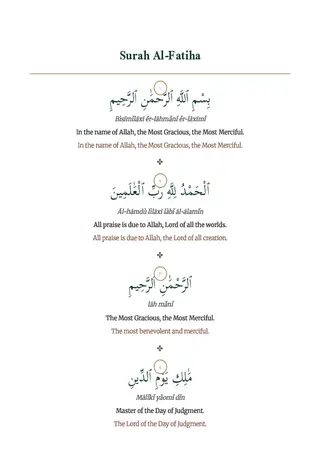 Surah Al-Fatiha
بِسْمِ ٱللَّهِ ٱلرَّحْمَٰنِ ٱلرَّحِيمِ
Bisimīlāxī ěr-lāhmānī ěr-lāxīmī
In the name of Allah, the Most Gracious, the Most Merciful.
In the name of Allah, the Most Gracious, the Most Merciful.
ٱلْحَمْدُ لِلَّهِ رَبِّ ٱلْعَٰلَمِينَ
Āl-hāmdù līlāxī lābī āl-ālamīn
All praise is due to Allah, Lord of all the worlds.
All praise is due to Allah, the Lord of all creation.
ٱلرَّحْمَٰنِ ٱلرَّحِيمِ
lāh mānī
The Most Gracious, the Most Merciful.
The most benevolent and merciful.
مَٰلِكِ يَوْمِ ٱلدِّينِ
Mālīkī yāomī dīn
Master of the Day of Judgment.
The Lord of the Day of Judgment.